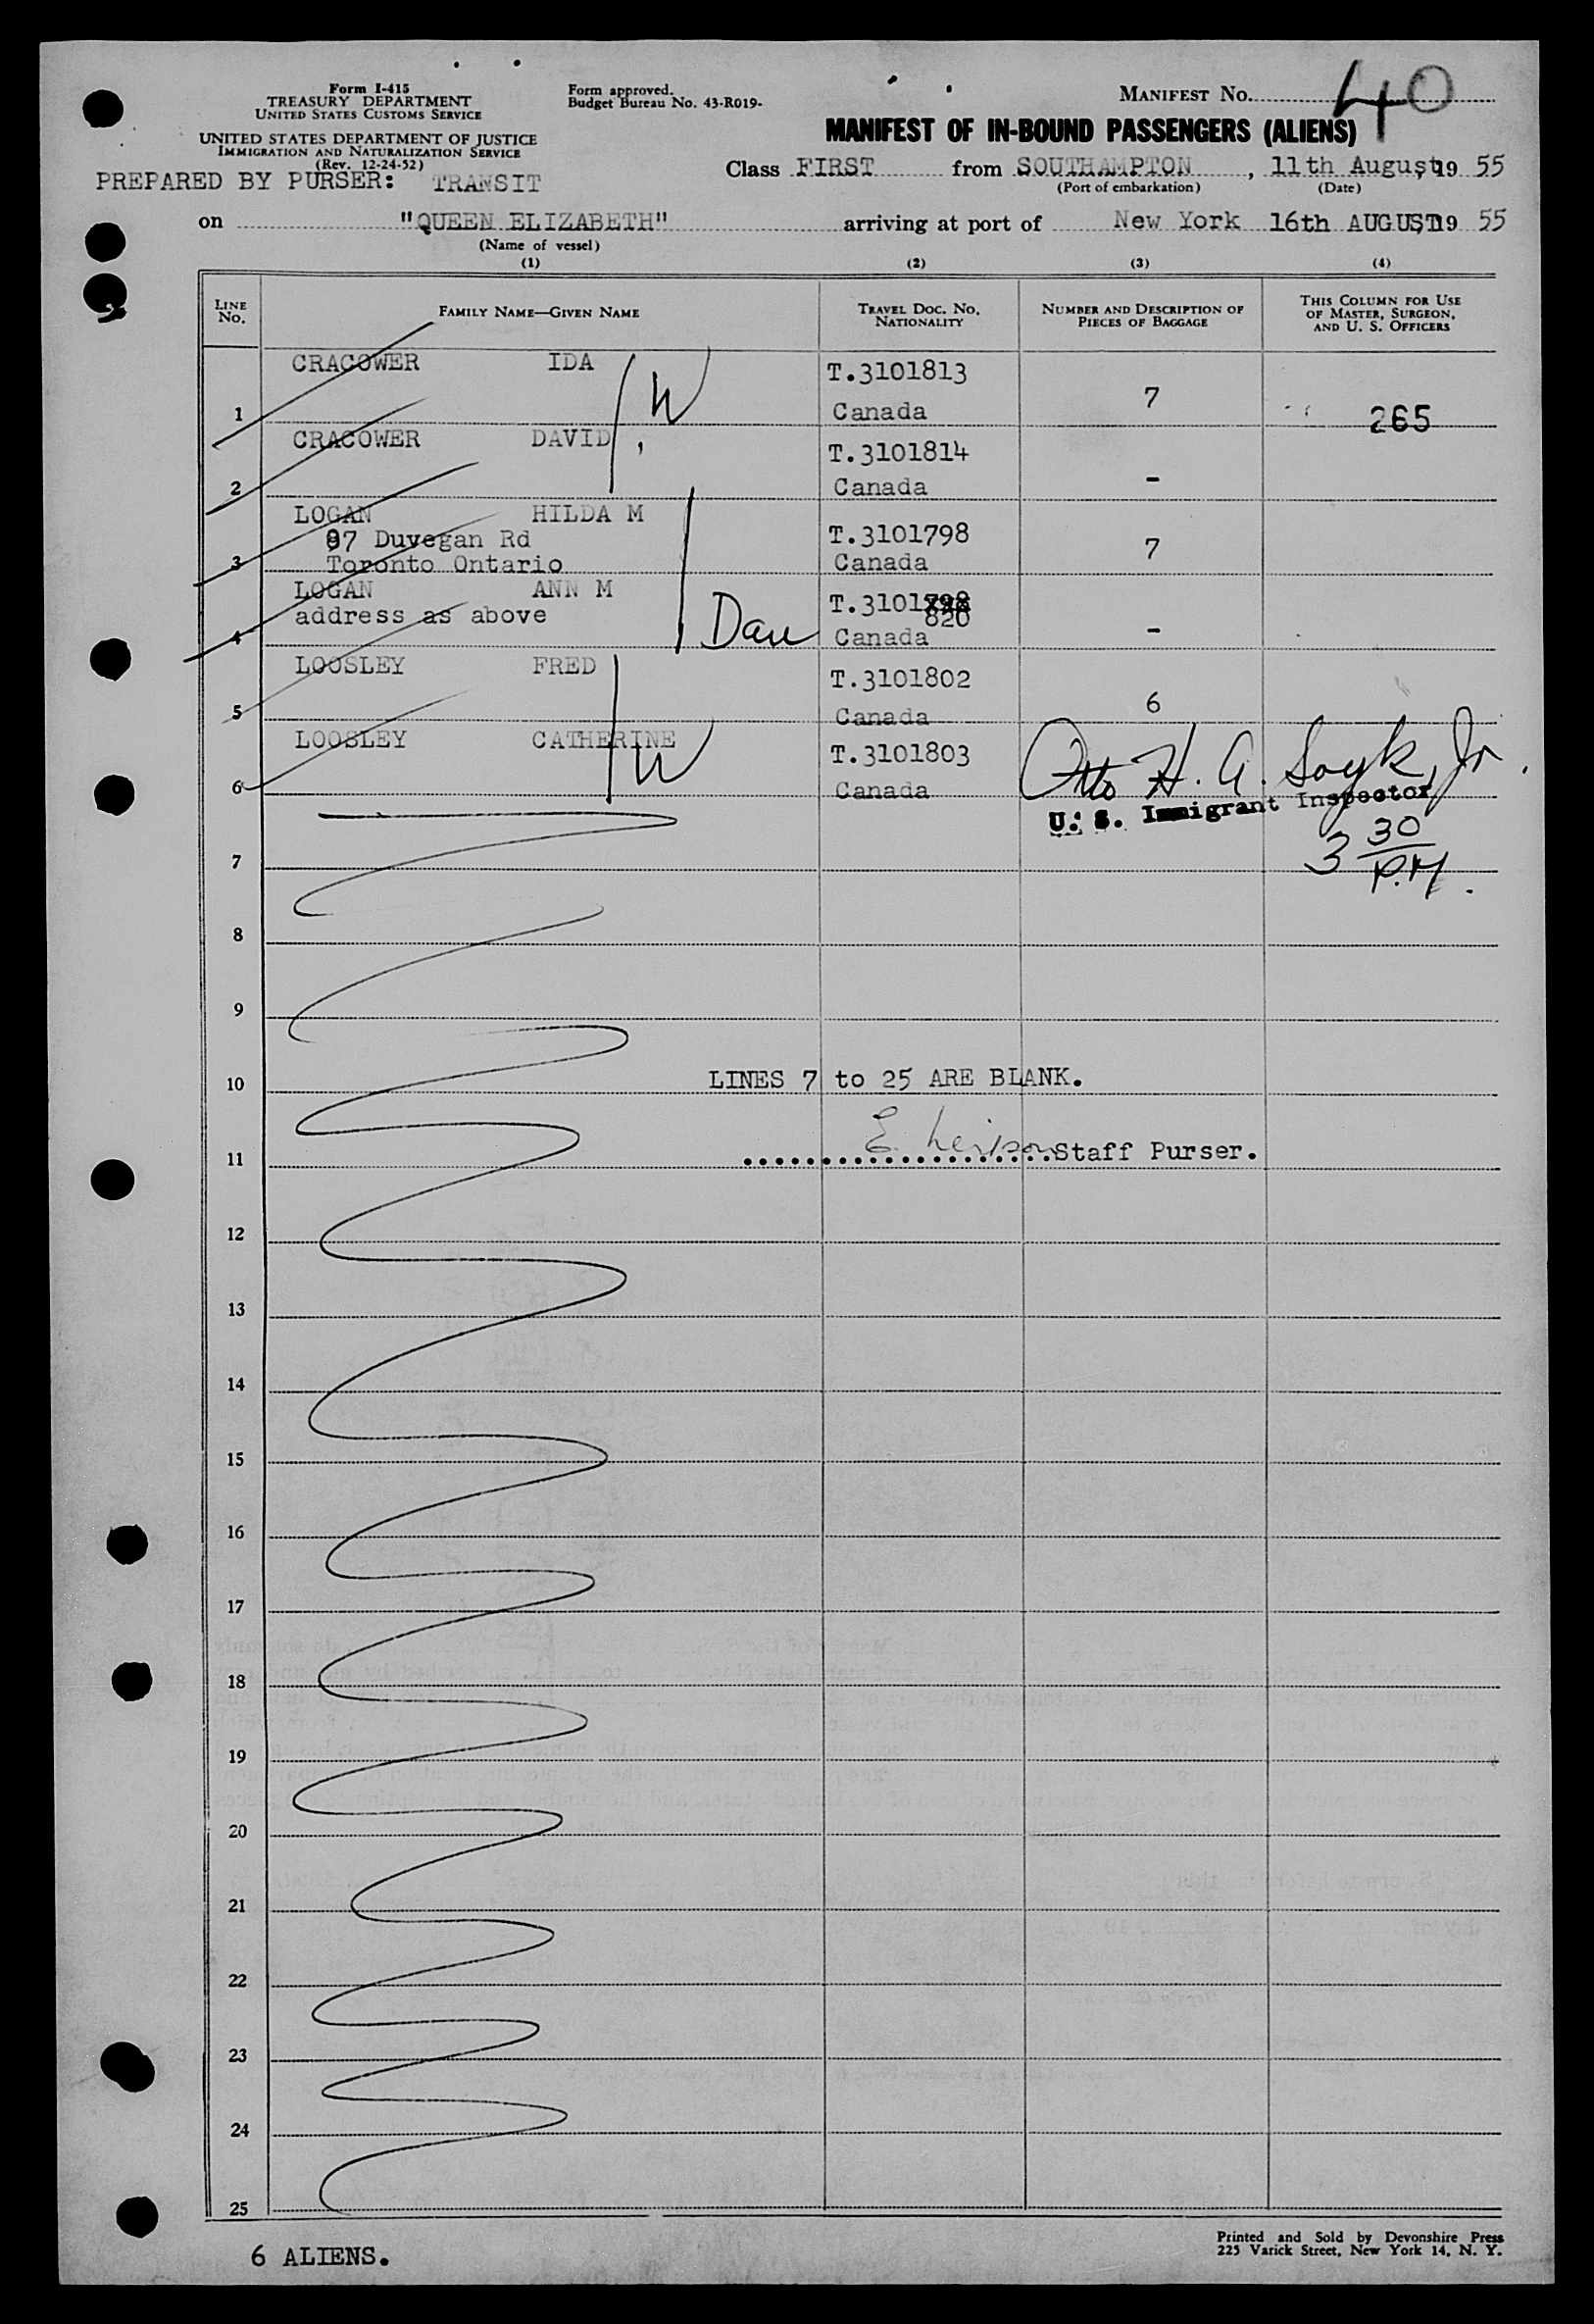 Form I-415
TREASURY DEPARTMENT
UNITED STATES CUSTOMS SERVICE
UNITED STATES DEPARTMENT OF JUSTICE
IMMIGRATION AND NATURALIZATION SERVICE
(Rev. 12-24-52)
PREPARED BY PURSER: TRANSIT
Form approved.
Budget Bureau No. 43-R019-
MANIFEST NO. 40
MANIFEST OF IN-BOUND PASSENGERS (ALIENS)
Class FIRST from SOUTHAMPTON, 11th August, 19 55
(Port of embarkation) (Date)
on "QUEEN ELIZABETH" arriving at port of New York 16th AUGUST, 19 55
(Name of vessel)
(1) (2) (3) (4)
LINE NO. FAMILY NAME—GIVEN NAME TRAVEL DOC. NO. NATIONALITY NUMBER AND DESCRIPTION OF PIECES OF BAGGAGE THIS COLUMN FOR USE OF MASTER, SURGEON, AND U. S. OFFICERS
CRACOWER IDA W T.3101813
1 Canada 7 265
CRACOWER DAVID T.3101814
2 Canada -
LOGAN HILDA M
97 Duvegan Rd T.3101798 7
3 Toronto Ontario Canada
LOGAN ANN M T.3101798
address as above 820
4 Dan Canada -
LOOSLEY FRED T.3101802
5 Canada 6
LOOSLEY CATHERINE W T.3101803
6 Canada
Otto H. A. Soyk, Jr.
U. S. Immigrant Inspector
3 30 P.M.
7
8
9
10 LINES 7 to 25 ARE BLANK.
11 Staff Purser.
12
13
14
15
16
17
18
19
20
21
22
23
24
25
6 ALIENS.
Printed and Sold by Devonshire Press
225 Varick Street, New York 14, N. Y.